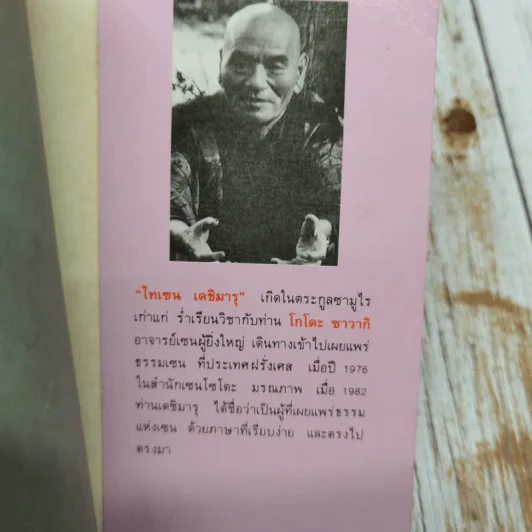 "ไทเซน เดชิมารุ" เกิดในตระกูลซามูไร
เก่าแก่ ร่ำเรียนวิชากับท่าน โกโดะ ซาวากิ
อาจารย์เซนผู้ยิ่งใหญ่ เดินทางเข้าไปเผยแพร่
ธรรมเซน ที่ประเทศฝรั่งเศส เมื่อปี 1976
ในสำนักเซนโซโตะ มรณภาพ เมื่อ 1982
ท่านเดชิมารุ ได้ชื่อว่าเป็นผู้ที่เผยแพร่ธรรม
แห่งเซน ด้วยภาษาที่เรียบง่าย และตรงไป
ตรงมา